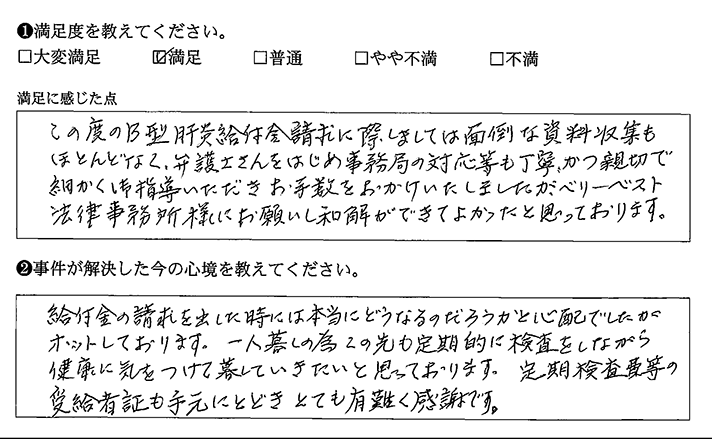 ❶満足度を教えてください。
□大変満足 ☑満足 □普通 □やや不満 □不満
満足に感じた点
この度のB型肝炎給付金請求に際しましては面倒な資料収集も
ほとんどなく、弁護士さんをはじめ事務局の対応等も丁寧、かつ親切で
細かく御指導いただきお手数をおかけいたしましたがベリーベスト
法律事務所様にお願いし和解ができてよかったと思っております。
❷事件が解決した今の心境を教えてください。
給付金の請求を出した時には本当にどうなるのだろうかと心配でしたが
ホットしております。一人暮しの為この先も定期的に検査をしながら
健康に気をつけて暮していきたいと思っております。定期検査費等の
受給者証も手元にとどきとても有難く感謝です。